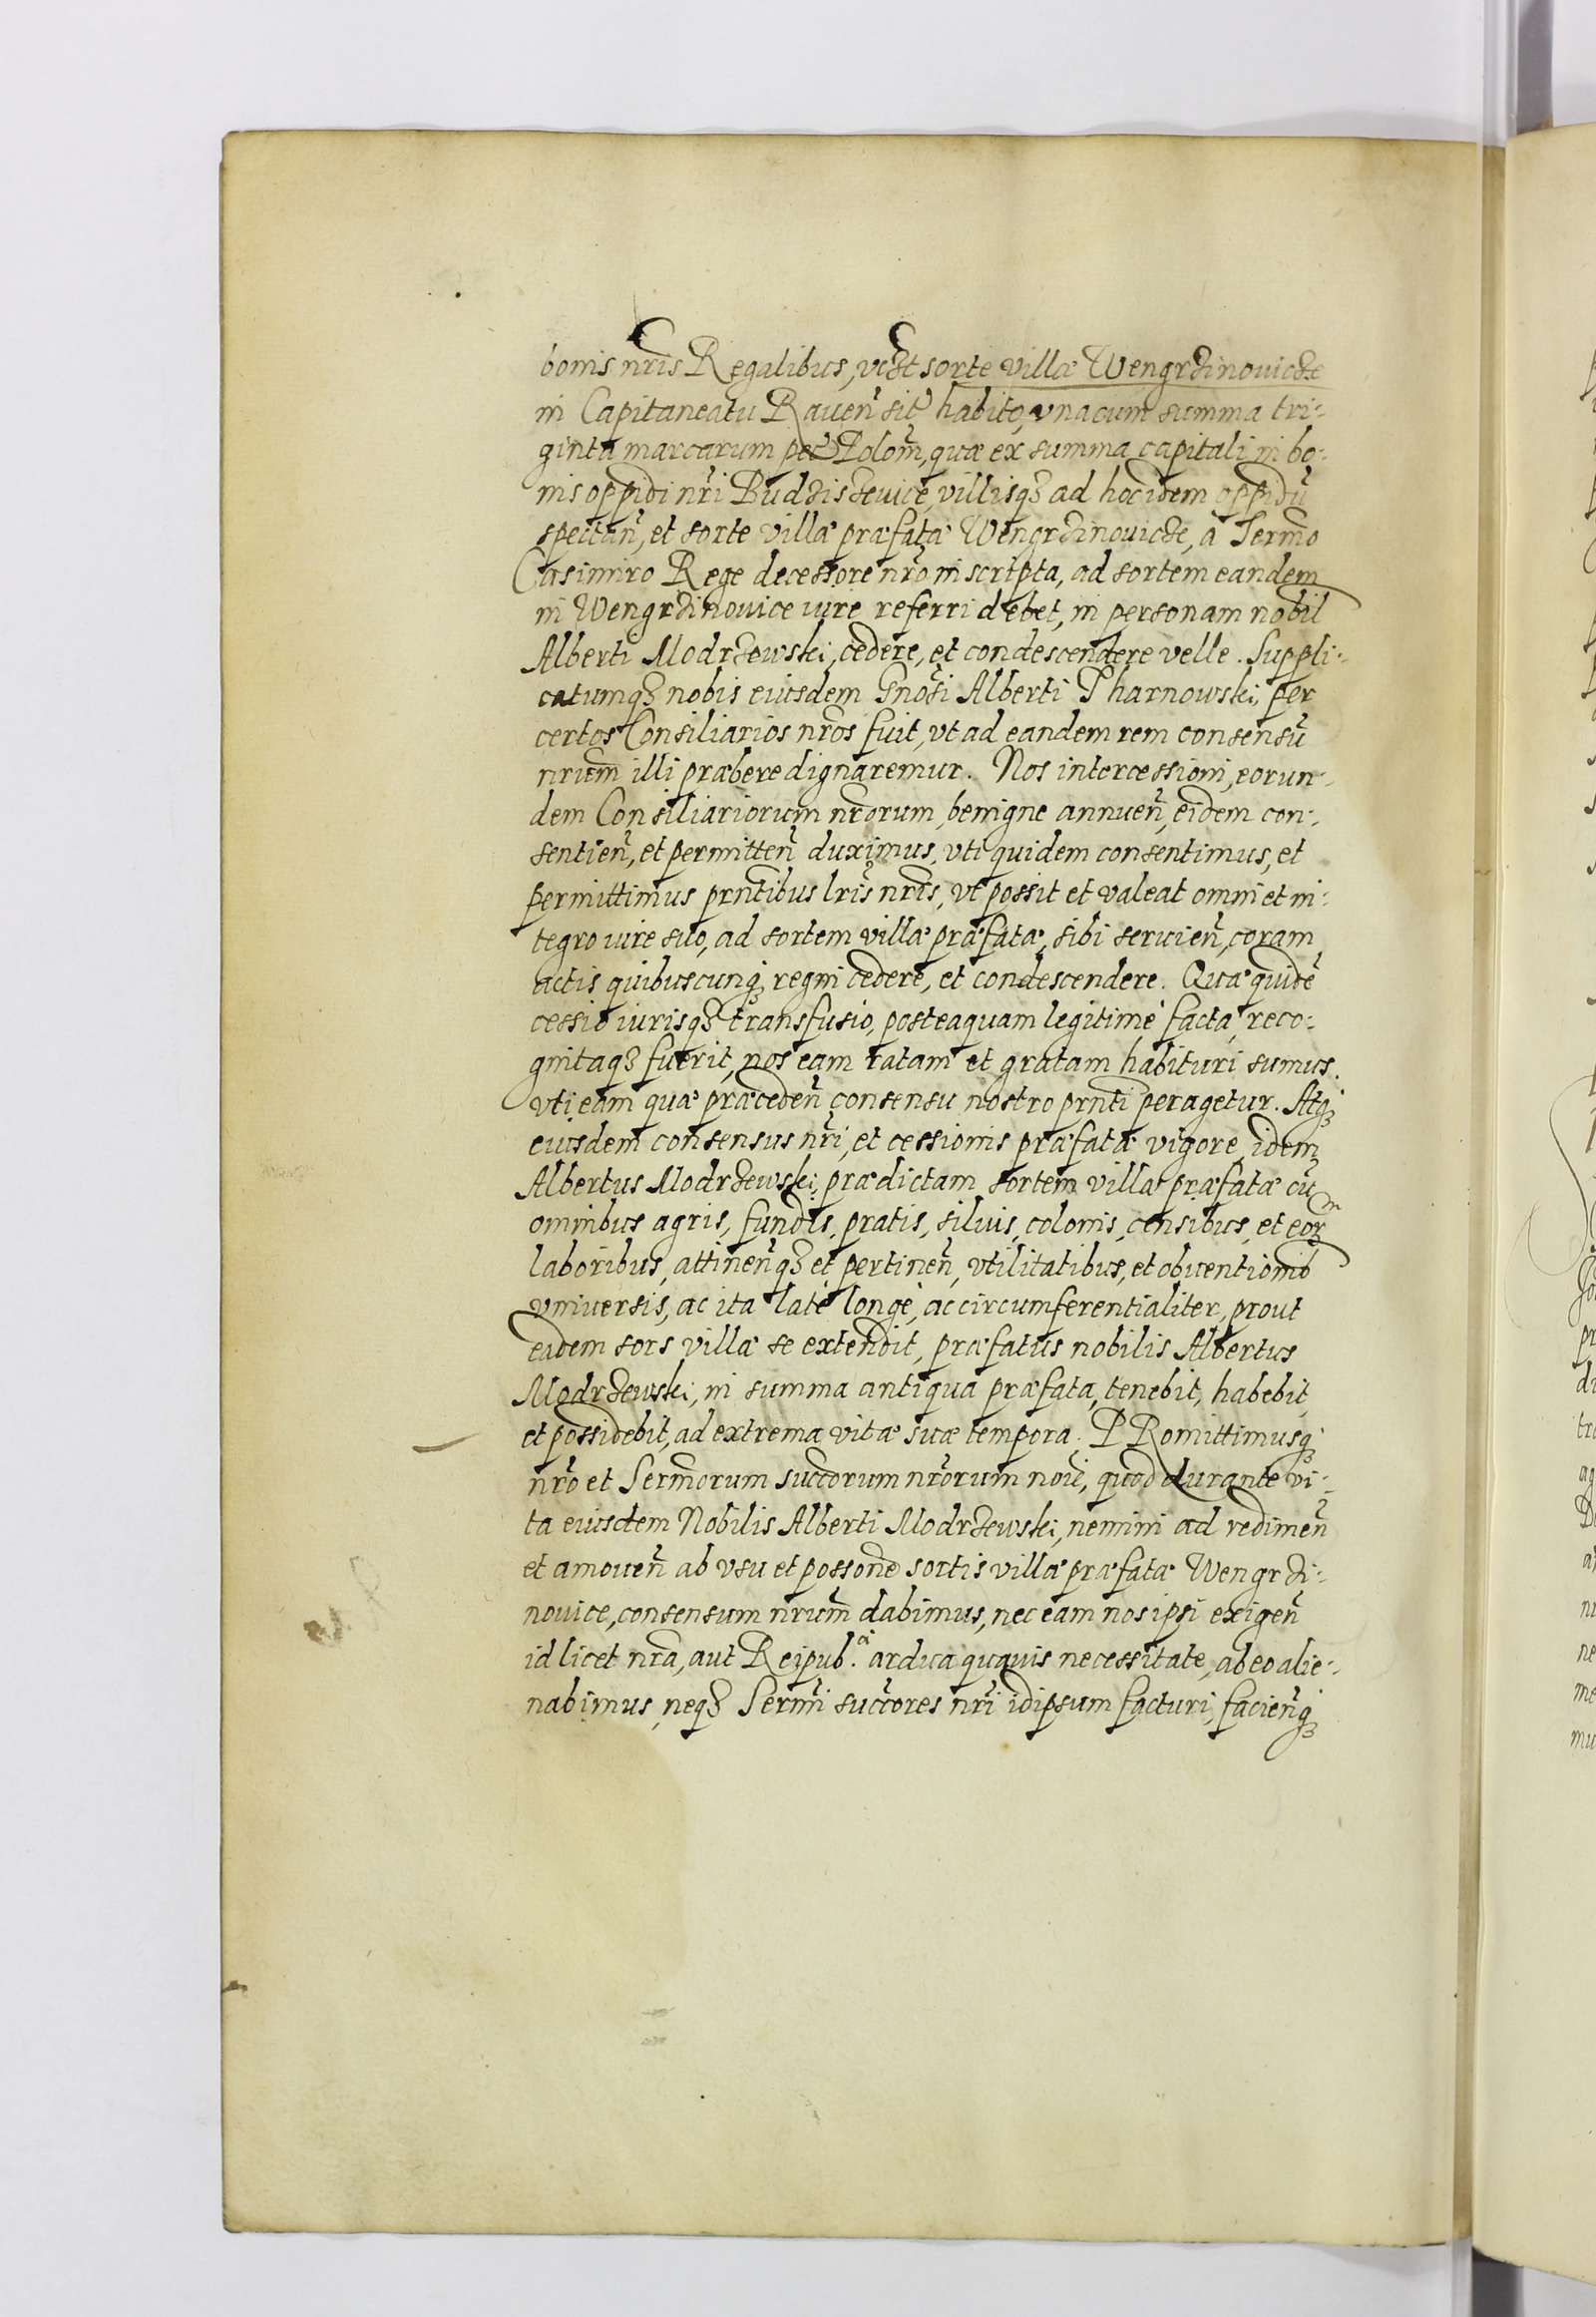 bonis nr̃is Regalibus, vc̃zt sorte villæ Wengrzinovicze
in Capitaneatu Raueñ sit̃ habito, vnacum summa tri-
ginta marcarum pec̃ Poloñ, quæ ex summa capitali in bo-
nis oppidi nr̃i Budzissewice, villisqꝫ ad hoc idem oppidũ
spectañ, et sorte villæ præfatæ Wengrzinovicze, a Sermo
Casimiro Rege decessore nr̃o inscripta, ad sortem eandem
in Wengrzinouice iure referri debet, in personam nobil
Alberti Modrzewski, cedere, et condescendere velle. Suppli-
catumqꝫ nobis eiusdem Gnosi Alberti Tharnowski, per
certos Consiliarios nr̃os fuit, vt ad eandem rem consensũ
nrũm illi præbere dignaremur. Nos intercessioni, eorun-
dem Consiliariorum nr̃orum, benigne annueñ, eidem con-
sentieñ, et permitteñ duximus, vti quidem consentimus, et
permittimus prñtibus lr̃is nr̃is, vt possit et valeat omni et in-
tegro iure suo, ad sortem villæ præfatæ, sibi seruieñ, coram
actis quibuscunqꝫ regni cedere, et condescendere. Quæ quidẽ
cessio iurisqꝫ transfusio, posteaquam legitimè facta, reco-
gnitaqꝫ fuerit, nos eam ratam et gratam habituri sumus.
vti eam quæ præcedeñ consensu nostro prñti peragetur. Atqꝫ
eiusdem consensus nr̃i, et cessionis præfatæ vigore, idem
Albertus Modrzewski, prædictam sortem villæ præfatæ cũ
omnibus agris, fundis, pratis, siluis, colonis, censibus, et eorꝫ
laboribus, attineñqꝫ et pertineñ, vtilitatibus, et obuentionib
vniuersis, ac ita latè longè, ac circumferentialiter, prout
eadem sors villæ se extendit, præfatus nobilis Albertus
Modrzewski, in summa antiqua præfata, tenebit, habebit,
et possidebit, ad extrema vitæ suæ tempora. PRomittimusqꝫ
nr̃o et Sermorum succ̃orum nr̃orum noĩe, quod durante vi-
ta eiusdem Nobilis Alberti Modrzewski, nemini ad redimeñ
et amoueñ ab vsu et possoñe sortis villæ præfatæ Wengrzi-
novice, consensum nrũm dabimus, nec eam nos ipsi exigeñ
id licet nr̃a, aut Reipub.ᶜᵃ ardua quauis necessitate, ab eo alie-
nabimus, neqꝫ Serm̃i succ̃ores nr̃i idipsum facturi, facieñqꝫ